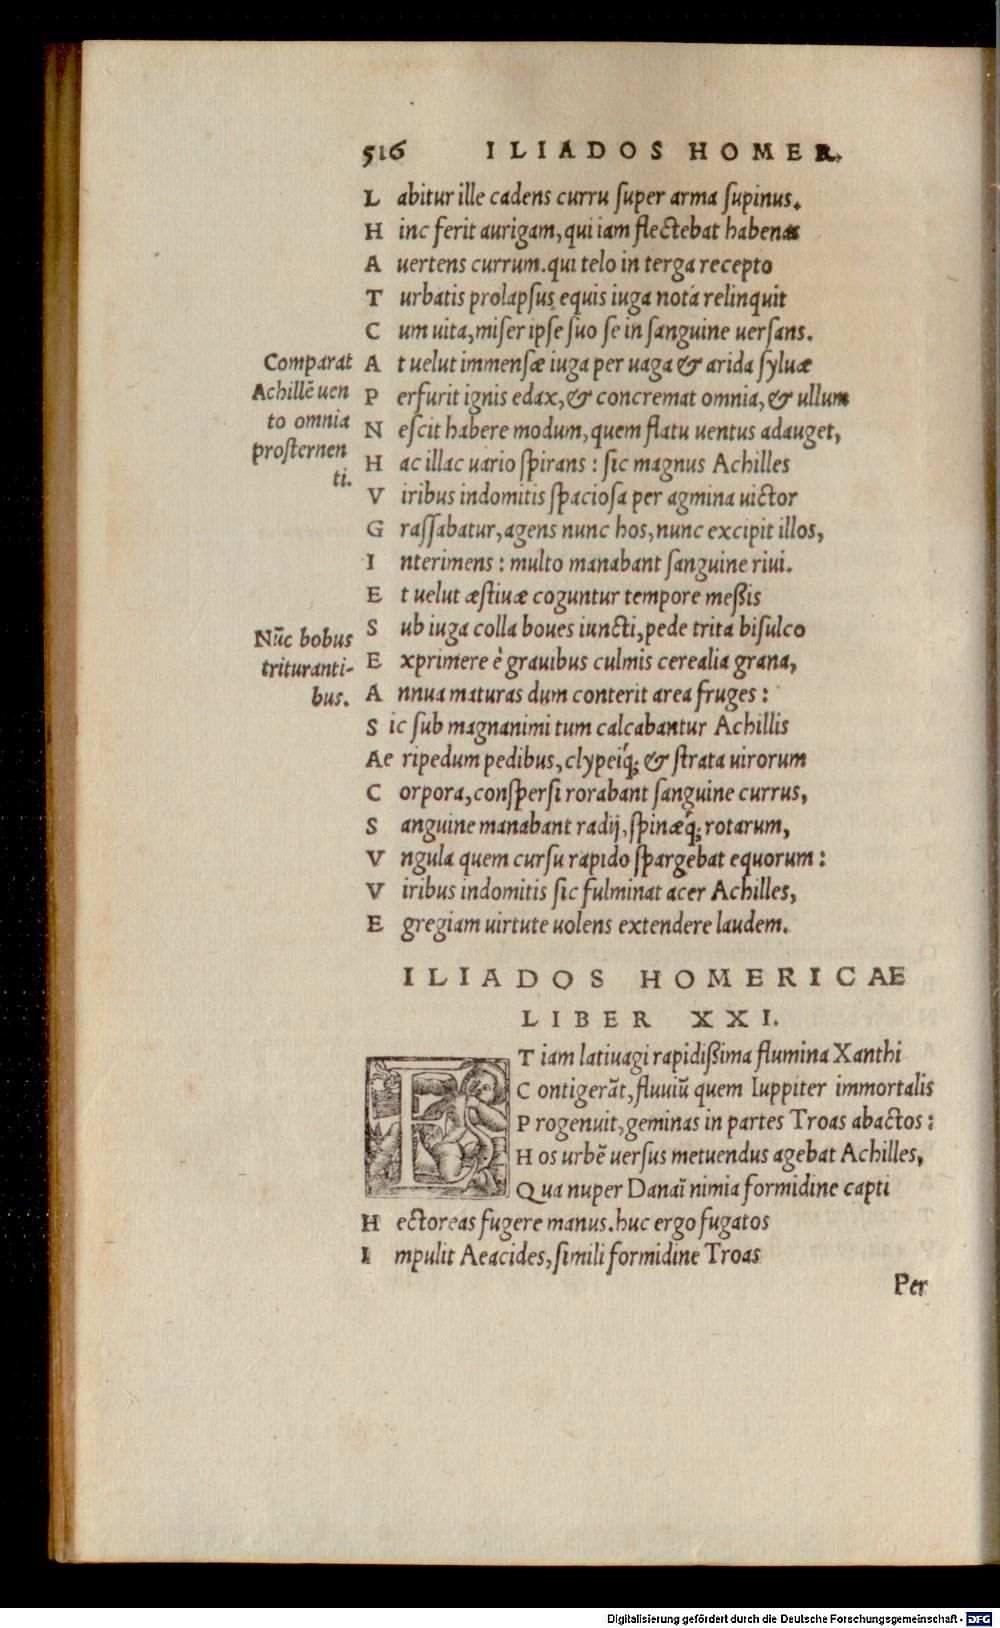 516 ILIADOS HOMER.
Labitur ille cadens curru ſuper arma ſupinus.
Hinc ferit aurigam, qui iam flectebat habenas
Auertens currum. qui telo in terga recepto
Turbatis prolapſus equis iuga nota relinquit
Cum uita, miſer ipſe ſuo ſe in ſanguine uerſans.
At uelut immenſæ iuga per uaga & arida ſyluæ
Perfurit ignis edax, & concremat omnia, & ullum
Neſcit habere modum, quem flatu uentus adauget,
Hac illac uario ſpirans : ſic magnus Achilles
Viribus indomitis ſpacioſa per agmina uictor
Graſſabatur, agens nunc hos, nunc excipit illos,
Interimens : multo manabant ſanguine riui.
Et uelut æſtiuæ coguntur tempore meßis
Sub iuga colla boues iuncti, pede trita biſulco
Exprimere è grauibus culmis cerealia grana,
Annua maturas dum conterit area fruges :
Sic ſub magnanimi tum calcabantur Achillis
Aeripedum pedibus, clypeiq́; & ſtrata uirorum
Corpora, conſperſi rorabant ſanguine currus,
Sanguine manabant radij, ſpinæq́; rotarum,
Vngula quem curſu rapido ſpargebat equorum :
Viribus indomitis ſic fulminat acer Achilles,
Egregiam uirtute uolens extendere laudem.
Comparat
Achillē uen
to omnia
proſternen
ti.
Nūc bobus
trituranti-
bus.
ILIADOS HOMERICAE
LIBER XXI.
ETiam latiuagi rapidißima flumina Xanthi
Contigerāt, fluuiū quem Iuppiter immortalis
Progenuit, geminas in partes Troas abactos :
Hos urbē uerſus metuendus agebat Achilles,
Qua nuper Danaï nimia formidine capti
Hectoreas fugere manus. huc ergo fugatos
Impulit Aeacides, ſimili formidine Troas
Per
Digitalisierung gefördert durch die Deutsche Forschungsgemeinschaft - DFG